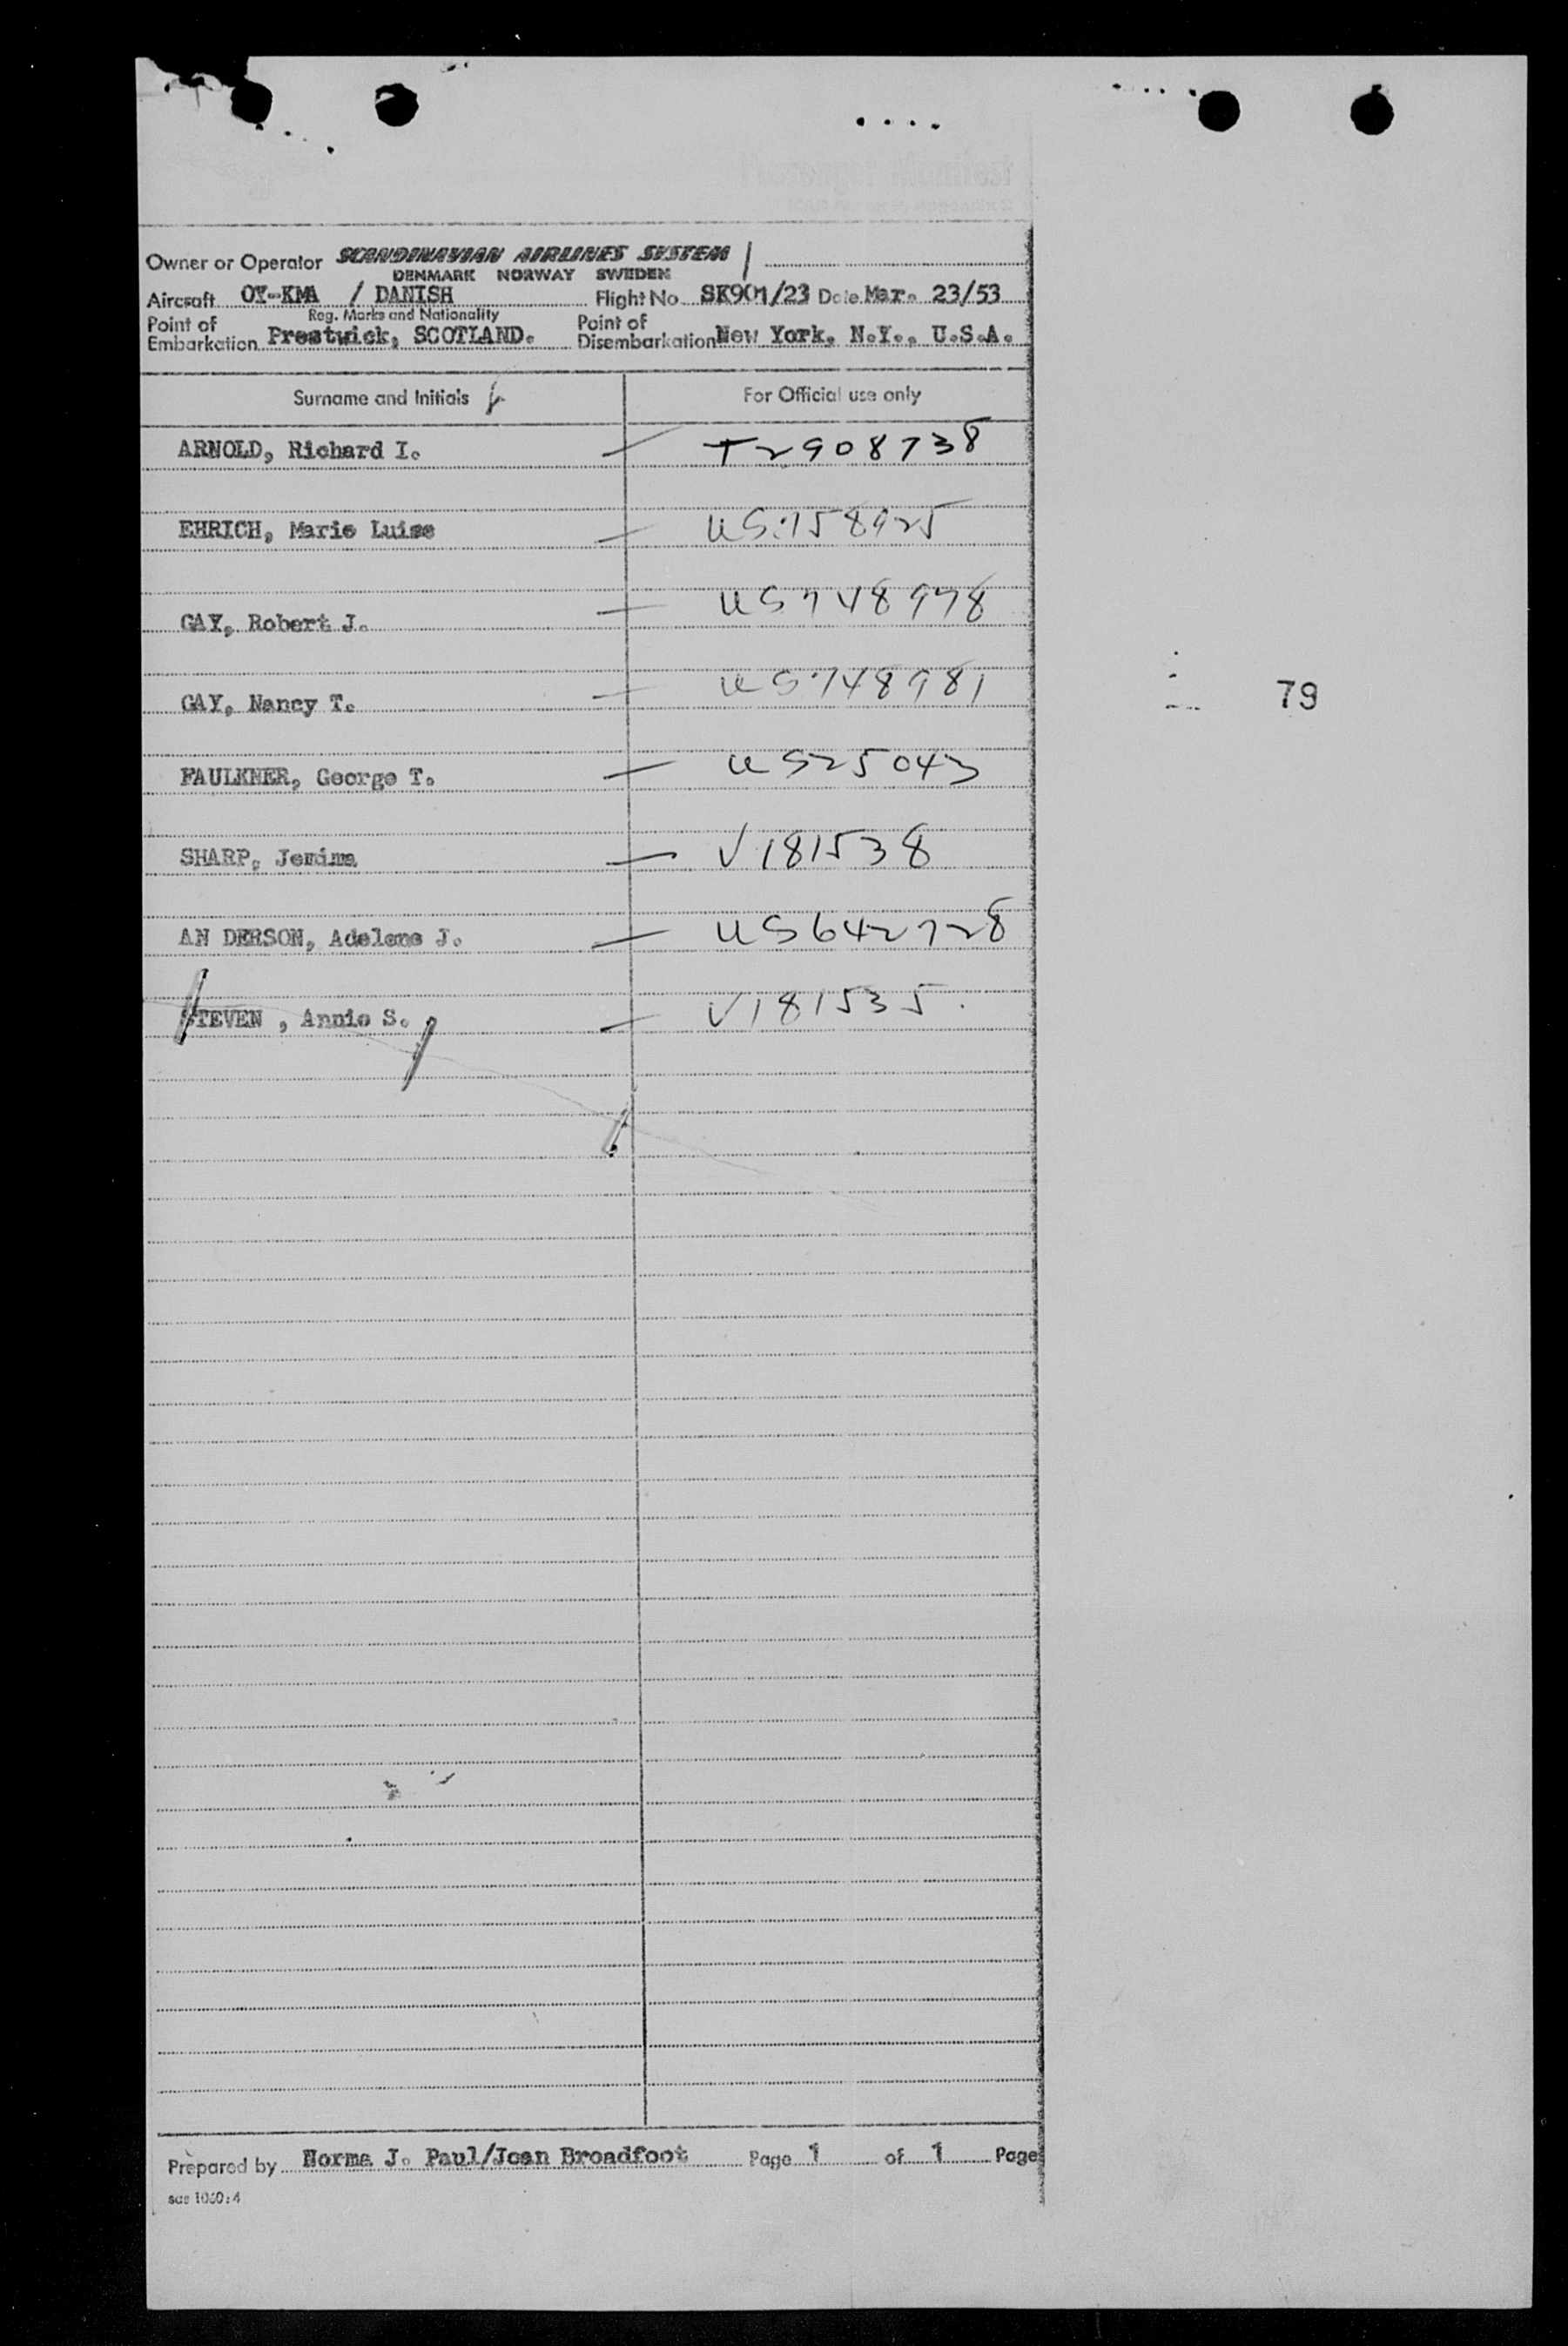 Owner or Operator SCANDINAVIAN AIRLINES SYSTEM
DENMARK NORWAY SWEDEN
Aircraft OY-KMA / DANISH Flight No. SK901/23 Date Mar. 23/53
Reg. Marks and Nationality
Point of Embarkation Prestwick, SCOTLAND. Point of Disembarkation New York, N.Y., U.S.A.
Surname and Initials For Official use only
ARNOLD, Richard I. — T2908738
EHRICH, Marie Luise — US 158925
GAY, Robert J. — US748978
GAY, Nancy T. — US748981
79
FAULKNER, George T. — US25043
SHARP, Jemima — V181538
AN DERSON, Adelene J. — US642728
STEVEN , Annie S. — V181535
Prepared by Norma J. Paul/Jean Broadfoot Page 1 of 1 Page
sas 1060:4